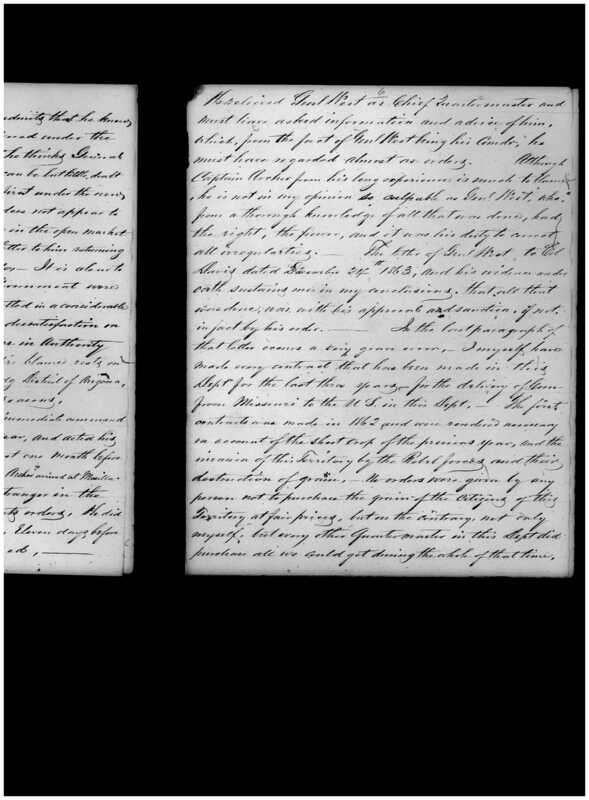 that he knew
under the
he thinks General
can be but little doubt
under the new
does not appear to
in the open market
letter to him returning
It is also to
were
in a considerable
dissatisfaction in
in Authority
blame rests on
District of Arizona,
reasons.
immediate command
and acted his
one month before
arrived at Mesilla
stranger in the
orders. He did
Eleven days before
6
He relieved Genl West as Chief Quartermaster and
must have asked information and advice of him,
which, from the fact of Genl West being his Comdr, he
must have regarded almost as orders. Although
Captain Archer from his long experience is much to blame,
he is not in my opinion so culpable as Genl West, who,
from a thorough knowledge of all that was done, had
the right, the power, and it was his duty to correct
all irregularities. — The letter of Genl West to Col
Davis dated December 24th 1863, and his evidence under
oath sustains me in my conclusions, that all that
was done, was with his approval and sanction, if not,
in fact by his order. — In the last paragraph of
that letter occurs a very grave error, — I myself, have
made every contract that has been made in this
Dept for the last three years, for the delivery of Corn
from Missouri to the U.S. in this Dept. — The first
contracts was made in 1862 and were rendered necessary
on account of the short crop of the previous year, and the
invasion of this Territory by the Rebel forces, and their
destruction of grain, — No orders were given by any
person not to purchase the grain of the Citizens of this
Territory at fair prices, but on the contrary, not only
myself, but every other Quarter master in this Dept did
purchase all we could get during the whole of that time,